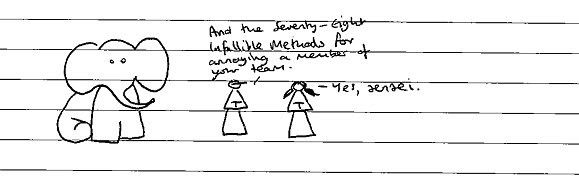 And the Seventy-Eight
Infallible Methods for
annoying a member of
your team.
- Yes, sensei.